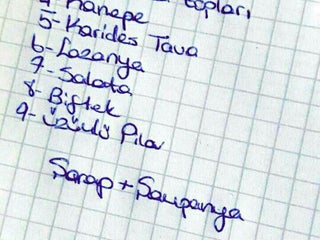 4- Kanepe topları
5- Karides Tava
6- Lazanya
7- Salata
8- Biftek
9- Üzümlü Pilav
Şarap + Şampanya